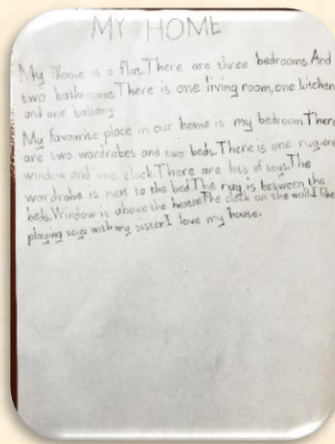 MY HOME
My home is a flat.There are three bedrooms.And
two bathrooms.There is one living room,one kitchen
and one balcony.
My favourite place in our home is my bedroom.There
are two wardrobes and two beds.There is one rug,one
window and one clock.There are lots of toys.The
wardrobe is next to the bed.The rug is between the
beds.Window is above the heater.The clock on the wall.I like
playing toys with my sister.I love my house.